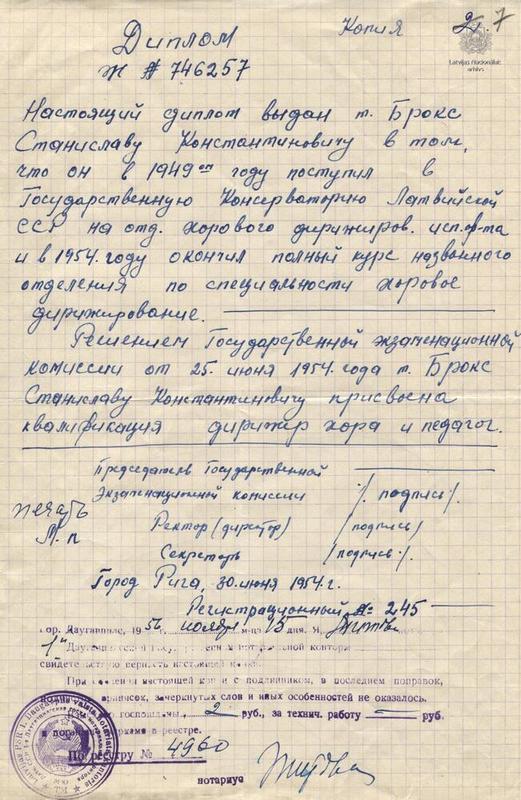 Копия
2. 7
Latvijas Nacionālais
arhīvs
Диплом
Ж № 746257
Настоящий диплом выдан т. Брокс
Станиславу Константиновичу в том,
что он в 1949 году поступил в
Государственную Консерваторию Латвийской
ССР на отд. хорового дирижиров. исп. ф-та
и в 1954. году окончил полный курс названного
отделения по специальности хоровое
дирижирование.
Решением Государственной экзаменационной
комиссии от 25. июня 1954. года т. Брокс
Станиславу Константиновичу присвоена
квалификация дирижер хора и педагог.
Председатель Государственной
Экзаменационной комиссии /. подпись/.
печать
М. п
Ректор (директор) /подпись/
Секретарь /подпись./.
Город Рига, 30. июня 1954. г.
Регистрационный № 245
гор. Даугавпилс, 1956 г. ноября м-ца 15 дня. Я,
1
свидетельствую верность настоящей копии.
При сличении настоящей копии с подлинником, в последнем поправок,
приписок, зачеркнутых слов и иных особенностей не оказалось.
госпошлины, 2 руб., за технич. работу — руб.
марками в реестре.
По реестру № 4960
нотариус